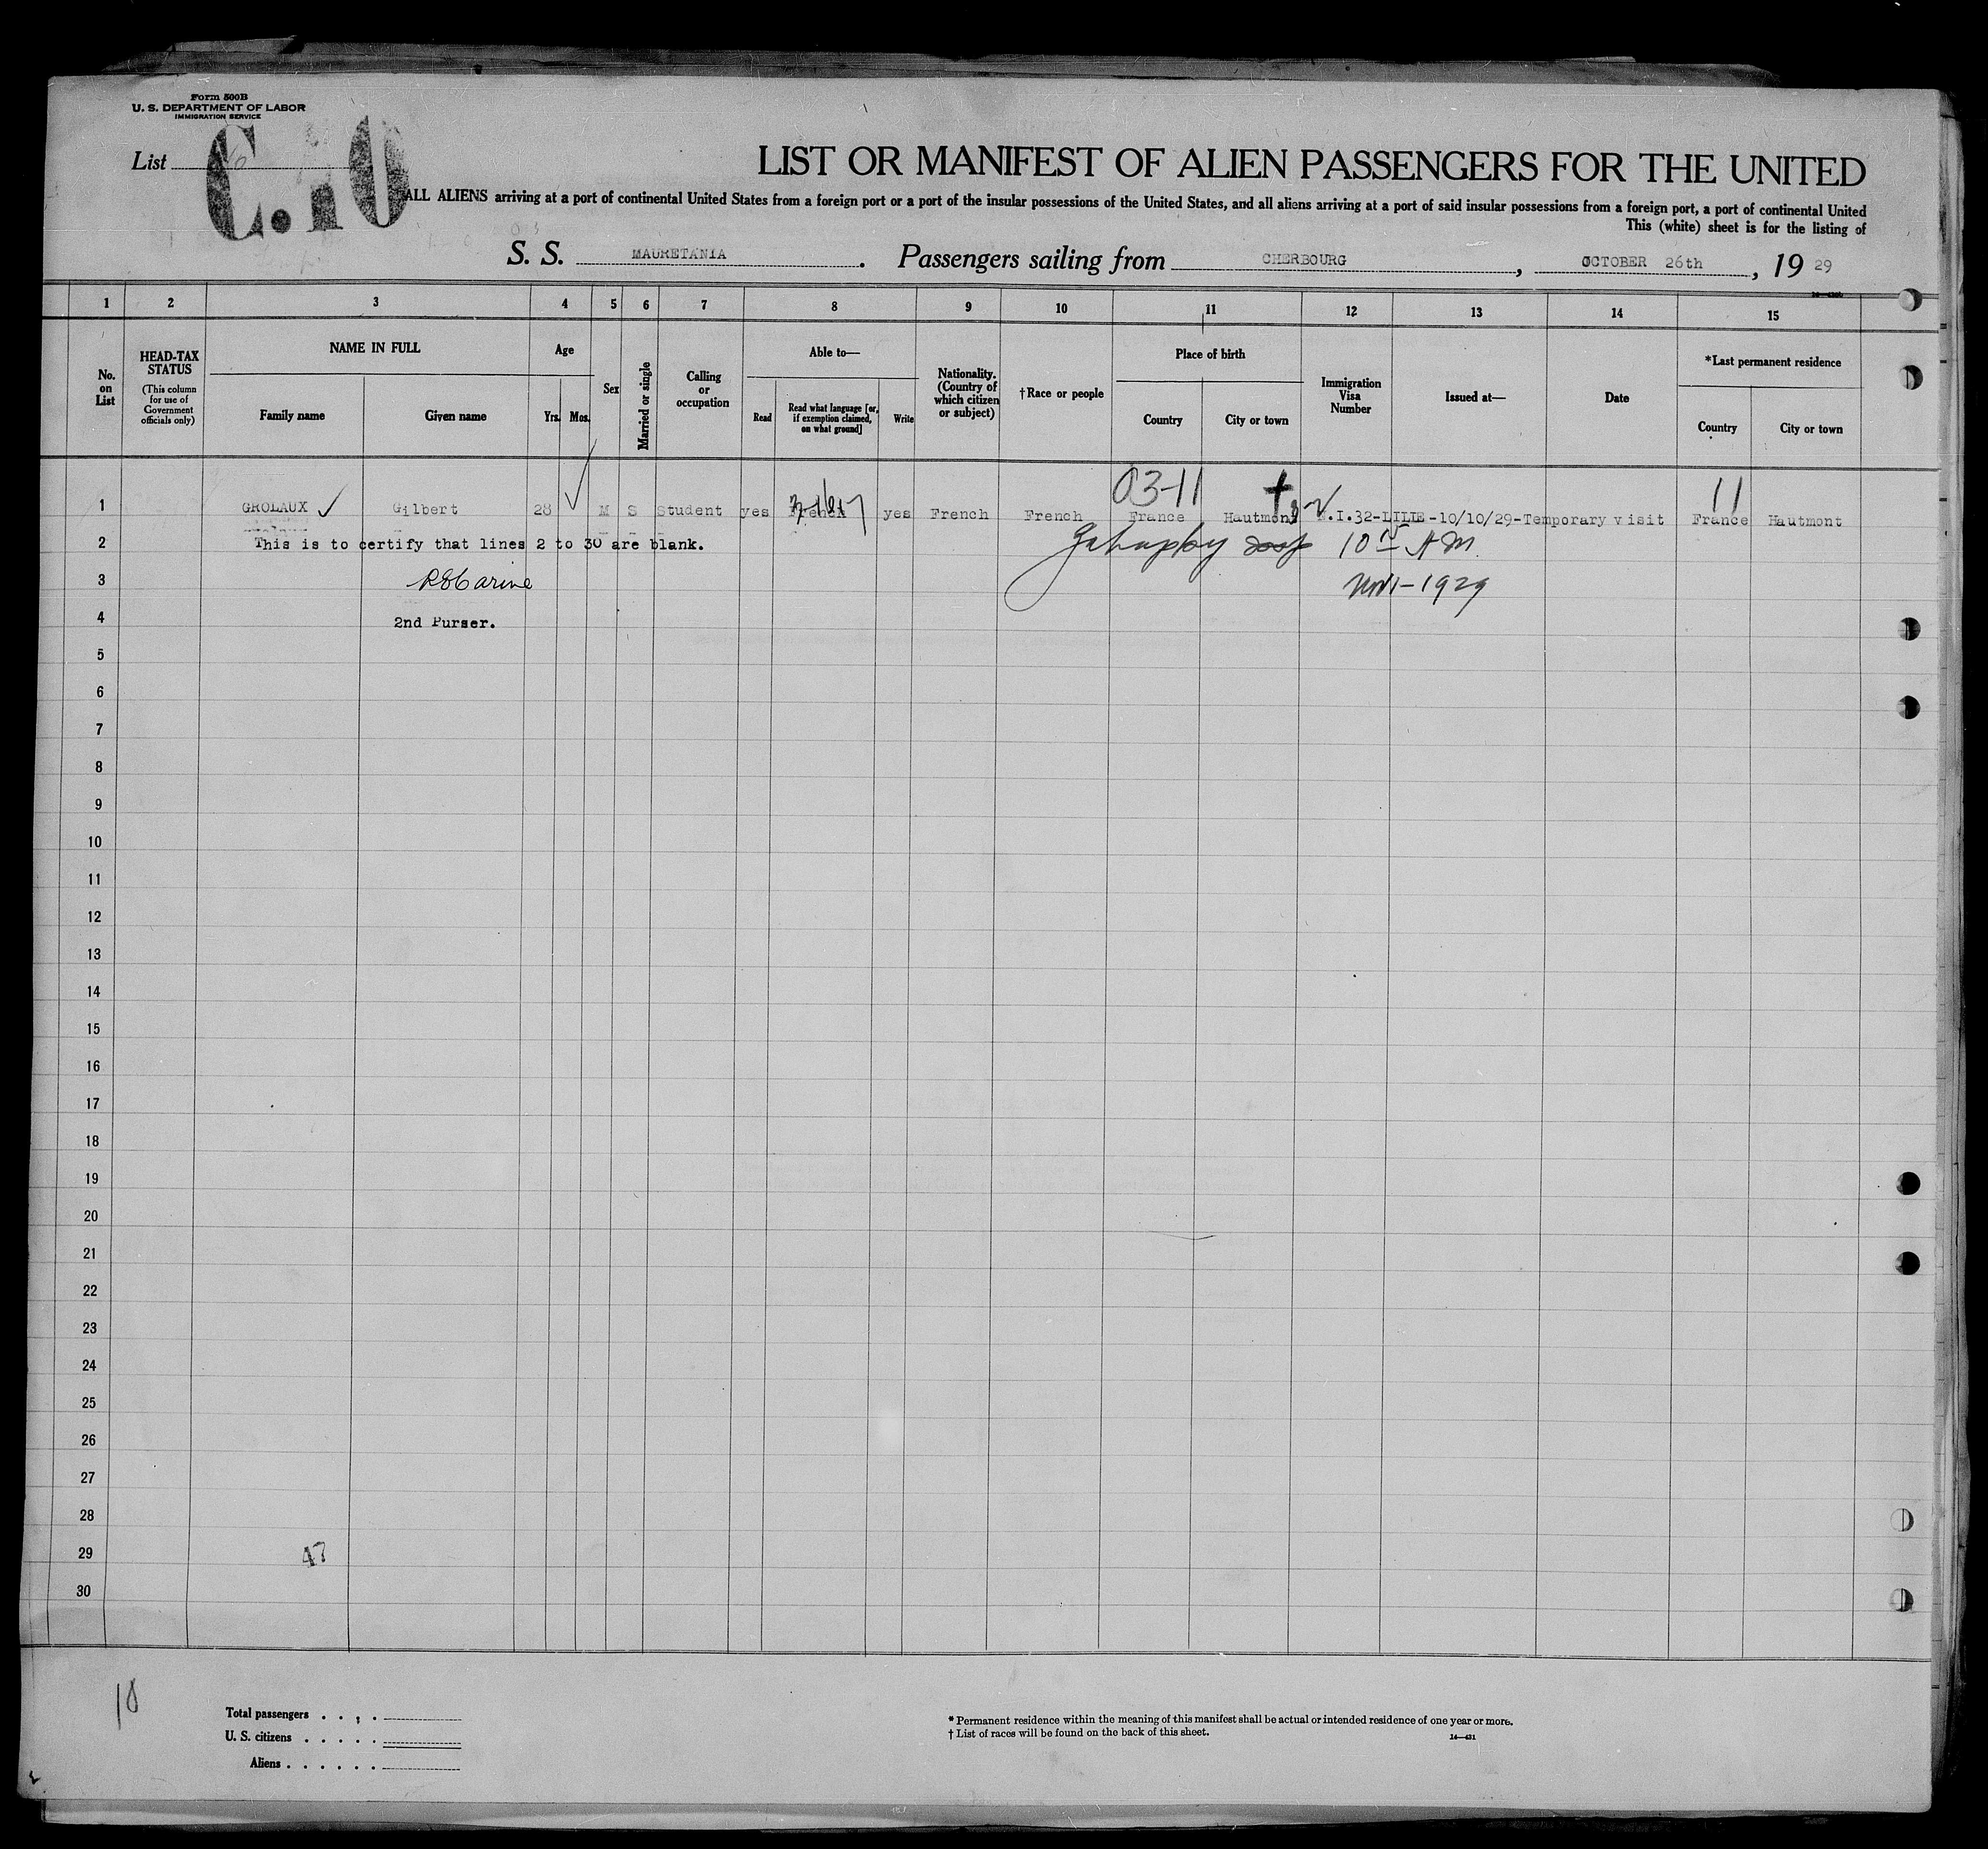 Form 500B
U. S. DEPARTMENT OF LABOR
IMMIGRATION SERVICE
List
LIST OR MANIFEST OF ALIEN PASSENGERS FOR THE UNITED
ALL ALIENS arriving at a port of continental United States from a foreign port or a port of the insular possessions of the United States, and all aliens arriving at a port of said insular possessions from a foreign port, a port of continental United
This (white) sheet is for the listing of
S. S. MAURETANIA. Passengers sailing from CHERBOURG, OCTOBER 26th, 19 29
1 2 3 4 5 6 7 8 9 10 11 12 13 14 15
No. on List
HEAD-TAX STATUS
(This column for use of Government officials only)
NAME IN FULL
Family name
Given name
Age
Yrs.
Mos.
Sex
Married or single
Calling or occupation
Able to—
Read
Read what language [or, if exemption claimed, on what ground]
Write
Nationality. (Country of which citizen or subject)
†Race or people
Place of birth
Country
City or town
Immigration Visa Number
Issued at—
Date
*Last permanent residence
Country
City or town
03-11
11
1 GROLAUX Gilbert 28 M S Student yes French yes French French France Hautmont .I.32-LILLE-10/10/29-Temporary visit France Hautmont
2 This is to certify that lines 2 to 30 are blank. 10 AM
3 1929
4 2nd Purser.
5
6
7
8
9
10
11
12
13
14
15
16
17
18
19
20
21
22
23
24
25
26
27
28
29 47
30
10
Total passengers
U. S. citizens
Aliens
* Permanent residence within the meaning of this manifest shall be actual or intended residence of one year or more.
† List of races will be found on the back of this sheet.
14—431